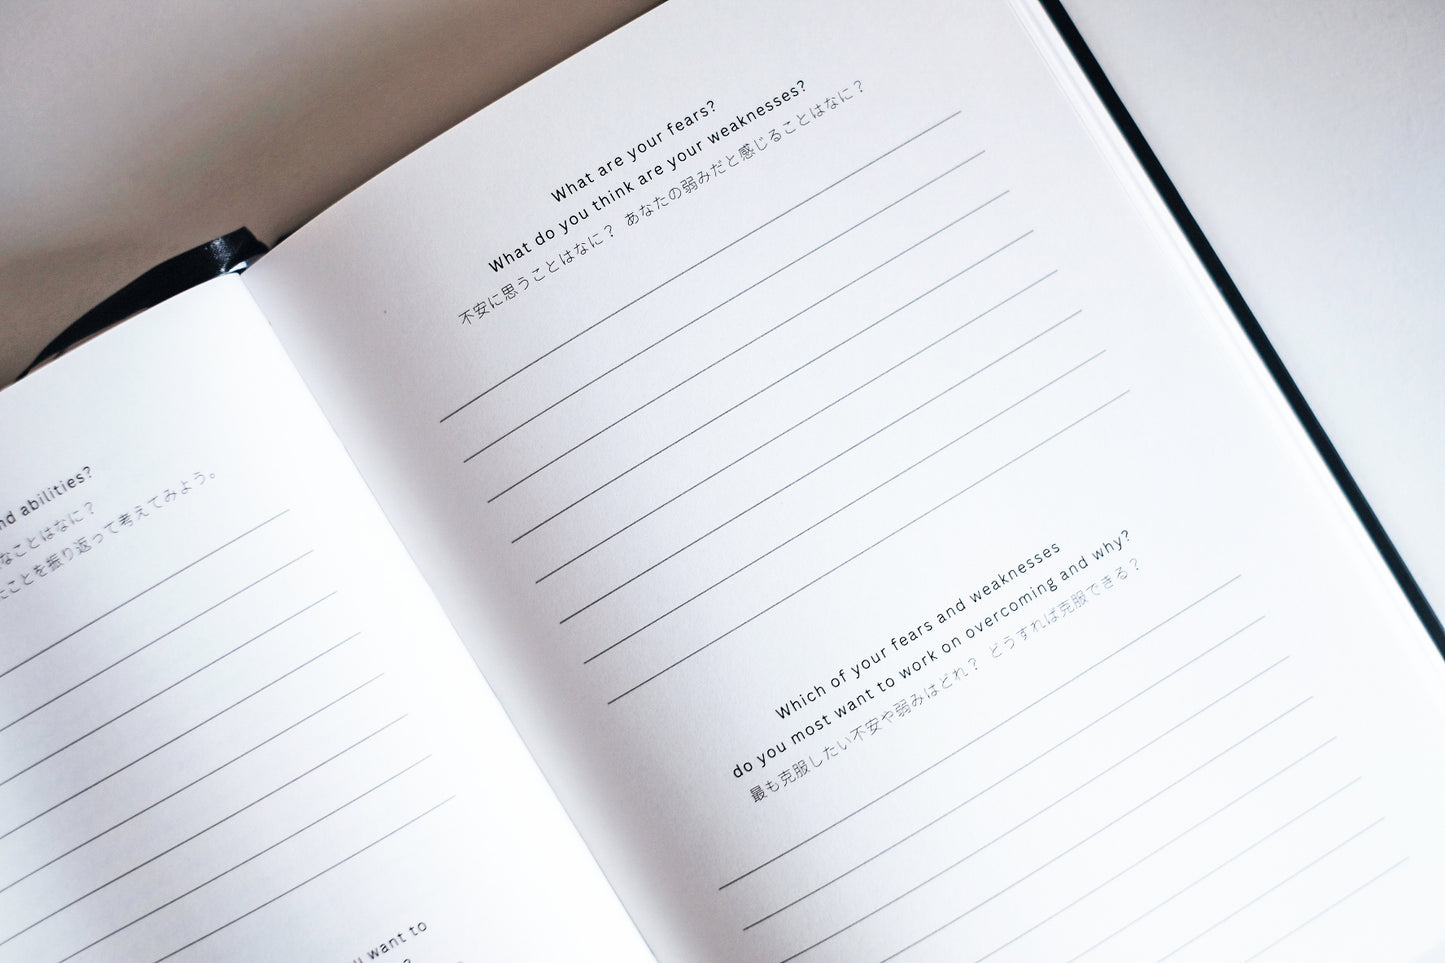 nd abilities?
なことはなに？
たことを振り返って考えてみよう。
want to
?
What are your fears?
What do you think are your weaknesses?
不安に思うことはなに？ あなたの弱みだと感じることはなに？
Which of your fears and weaknesses
do you most want to work on overcoming and why?
最も克服したい不安や弱みはどれ？ どうすれば克服できる？